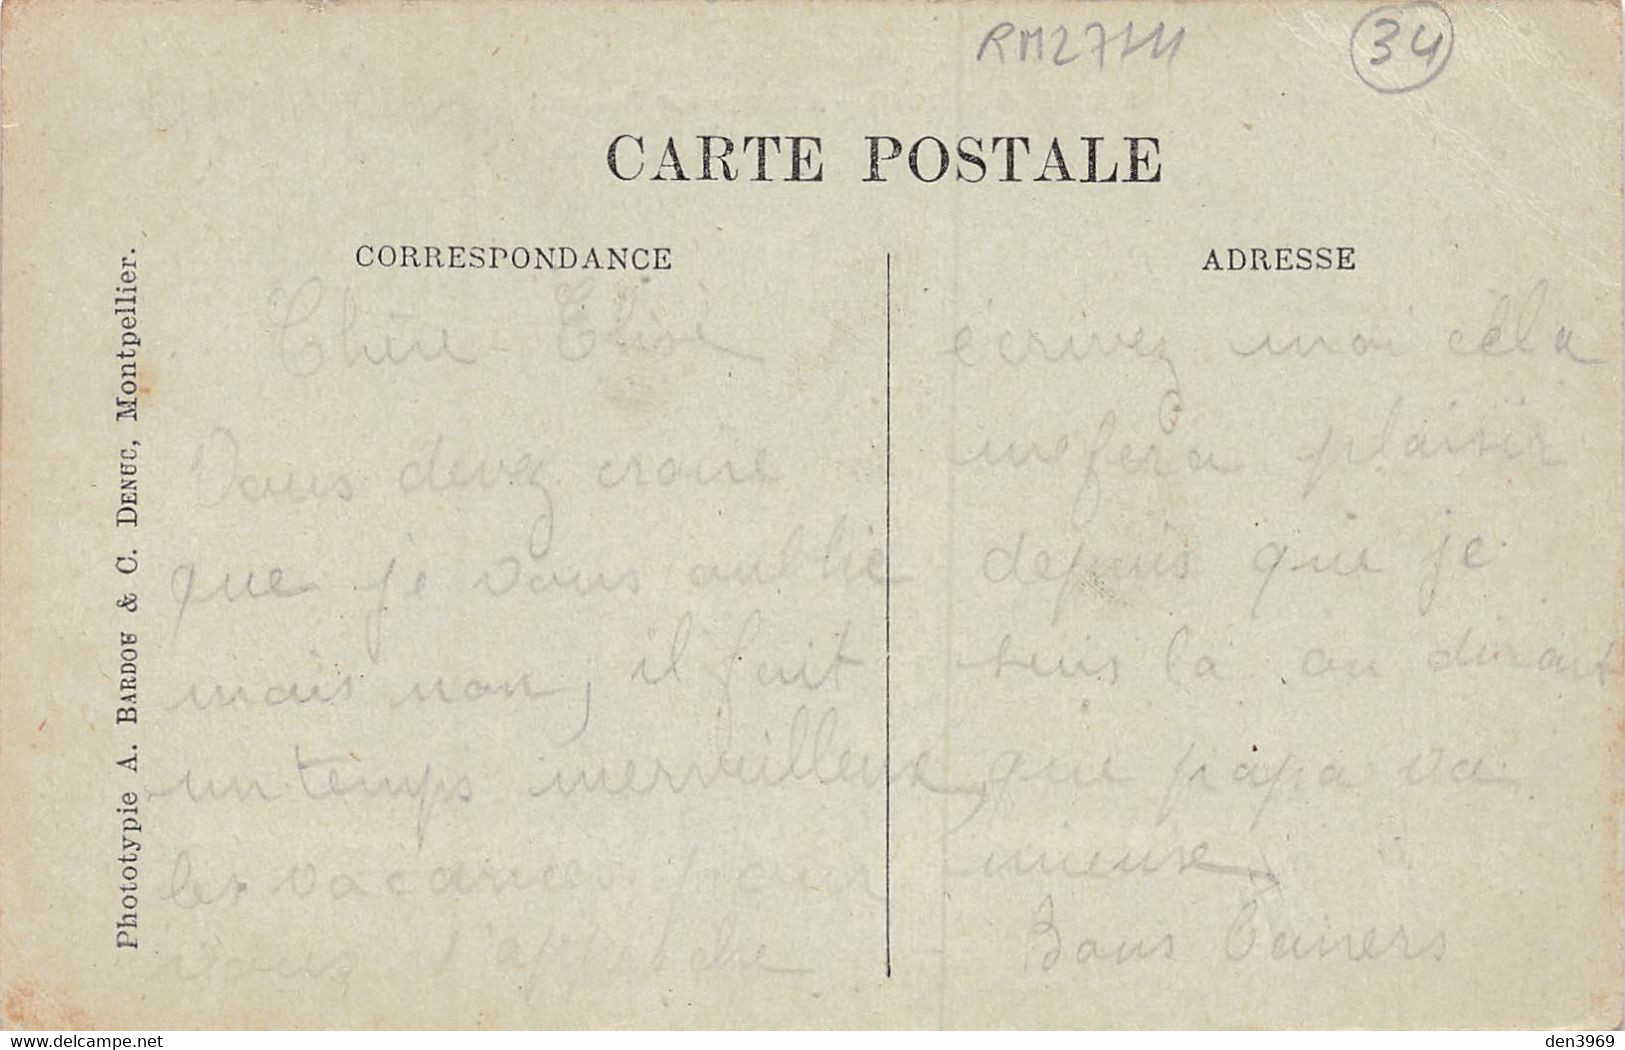 RM2711
34
CARTE POSTALE
CORRESPONDANCE
ADRESSE
Phototypie A. BARDOU & C. DENUC, Montpellier.
Chère Elise
Vous devez croire
que je vous oublie
mais non, il fait
un temps merveilleux,
les vacances pour
vous s'approche
écrivez moi cela
me fera plaisir
depuis que je
suis là on dirait
que papa va
mieux,
Bons Baisers
den3969
delcampe.net